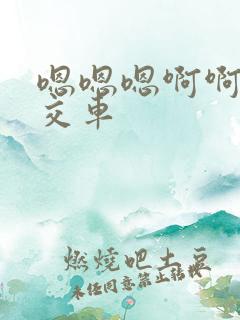 嗯嗯嗯啊啊
交车
燃烧吧土豆
未经同意禁止转载